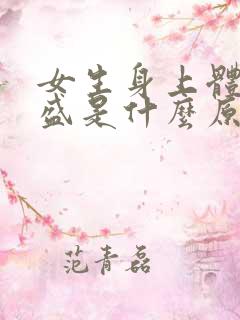 女生身上體
盛是什麼原
范青磊